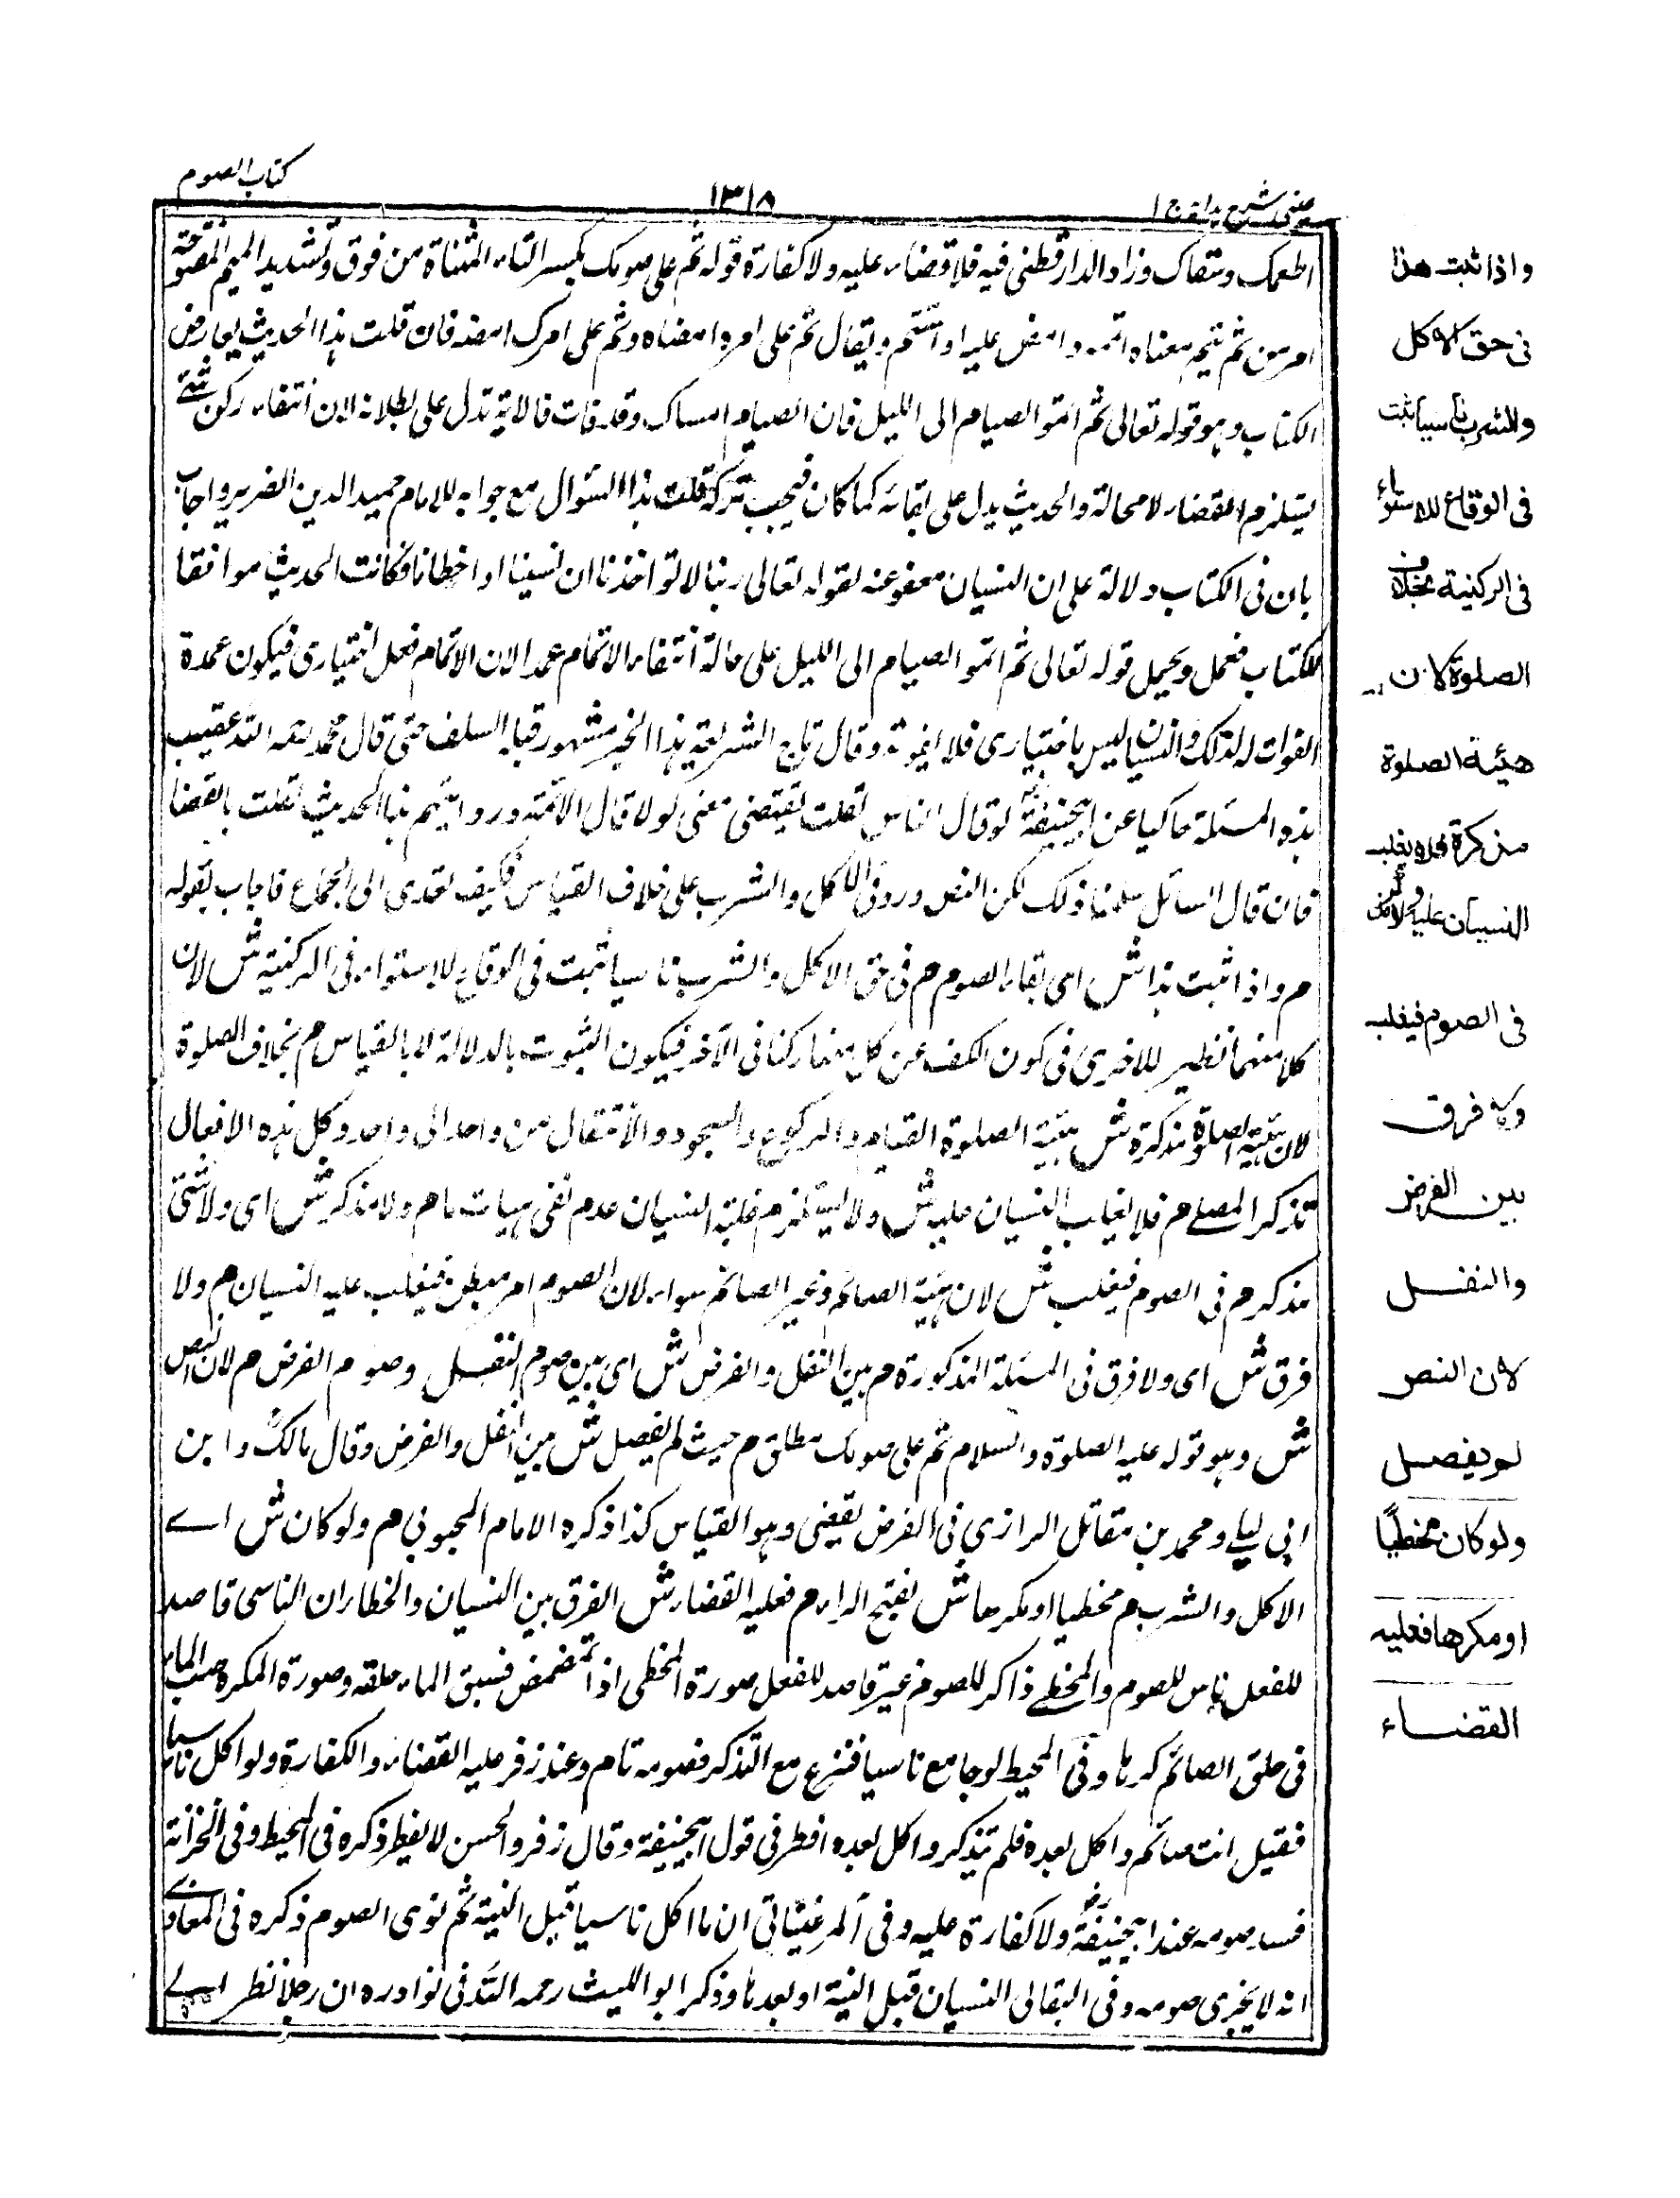 عینی شرح ہدایہ ج ا
١٣١٨
كتاب الصوم
اطعمك وسقاك وزاد الدارقطنى فيه فلا قضاء عليه ولا كفارة قوله تم على صومك بكسر التاء المثناة من فوق وتشديد الميم المفتوحة
امر من تم يتم معناه اتمه وامض عليه او استتم ويقال تم على امره امضاه وتم على امرك امضه فان قلت هذا الحديث يعارض
الكتاب وهو قوله تعالى ثم اتموا الصيام الى الليل فان الصيام امساك وقد فات فالاية تدل على بطلانه لان انتفاء ركن شئ
يستلزم انتقضاء لا محالة والحديث يدل على بقائه كما كان فيجب تركه قلت هذا السئوال مع جوابه للامام حميد الدين الضرير واجاب
بان فى الكتاب دلالة على ان النسيان معفو عنه لقوله تعالى ربنا لا تواخذنا ان نسينا او اخطانا فكانت الحديث موافقا
للكتاب فعمل ويحمل قوله تعالى ثم اتموا الصيام الى الليل على حالة انتفاء الاتمام عمدا لان الاتمام فعل اختيارى فيكون عمدة
الفوات له لذلك والنسيان ليس باختيارى فلا يفوته وقال تاج الشريعة هذا الخبر مشهور قبله السلف حتى قال محمد رحمه الله عقيب
هذه المسئلة حاكيا عن ابيحنيفة لو قال الناس لقلت يقتضى معنى لولا قال الائمة وروايتهم هذا الحديث لقلت بالقضا
فان قال السائل سلمنا ذلك لكن النص ورد فى الاكل والشرب على خلاف القياس فكيف تعدى الى الجماع فاجاب بقوله
م واذا ثبت هذا ش اى بقاء الصوم م فى حق الاكل والشرب ناسيا ثبت فى الوقاع للاستواء فى الركنية ش لان
كلا منهما نظير للاخرى فى كون الكف عن كل منهما ركنا فى الآخر فيكون الثبوت بالدلالة لا بالقياس م بخلاف الصلوة
لان هيئة الصلوة مذكرة ش هيئة الصلوة القيام والركوع والسجود والانتقال من واحد الى واحد وكل هذه الافعال
تذكر المصلے م فلا يغلب النسيان عليه ش ولا يستلزم غلبة النسيان عدم نفى هيات ما م ولا مذكر ش اى ولا شئ
مذكر م فى الصوم فيغلب ش لان هيئة الصائم وغير الصائم سواء لان الصوم امر مبطن فيغلب عليه النسيان م ولا
فرق ش اى ولا فرق فى المسئلة المذكورة م بين النفل والفرض ش اى بين صوم النفـل وصوم الفرض م لان النص
ش وهو قوله عليه الصلوة والسلام تم على صومك مطلق م حيث لم يفصل ش بين النفل والفرض وقال مالك وابن
ابى ليلے ومحمد بن مقاتل الرازي فى الفرض يقضى وهو القياس كذا ذكره الامام المحبوبى م ولو كان ش اے
الاكل والشرب م مخطيا او مكرها ش بفتح الراء م فعليه القضاء ش الفرق بين النسيان والخطا ان الناسى قاصد
للفعل ناس للصوم والمخطے ذاكر للصوم غير قاصد للفعل صورة المخطى اذا تمضمض فسبق الماء حلقه وصورة المكره صب الماء
فى حلق الصائم كرها وفى المحيط لو جامع ناسيا فنزع مع التذكر فصومه تام وعند زفر عليه القضاء والكفارة ولو اكل ناسيا
فقيل انت صائم واكل بعده فلم يتذكر واكل بعده افطر فى قول ابيحنيفة وقال زفر والحسن لا يفطر ذكره فى المحيط وفى الخزانة
فسد صومه عند ابيحنيفة ولا كفارة عليه وفى المرغينانى ان ما اكل ناسيا قبل النية ثم نوى الصوم ذكره فى الفتاوے
انه لا يجزى صومه وفى البقالى النسيان قبل النية او بعدها وذكر ابو الليث رحمه الله فى نوادره ان رجلا نظر اسے
واذا ثبت هذا
فى حق الاكل
والشرب ناسيا ثبت
فى الوقاع للاستواء
فى الركنية بخلاف
الصلوة لان
هيئة الصلوة
مذكرة فلا يغلب
النسيان عليه ولا مذكر
فى الصوم فيغلب
ولا فرق
بين الفرض
والنفـل
لان النص
لم يفصل
ولو كان مخطيًا
او مكرها فعليه
القضاء